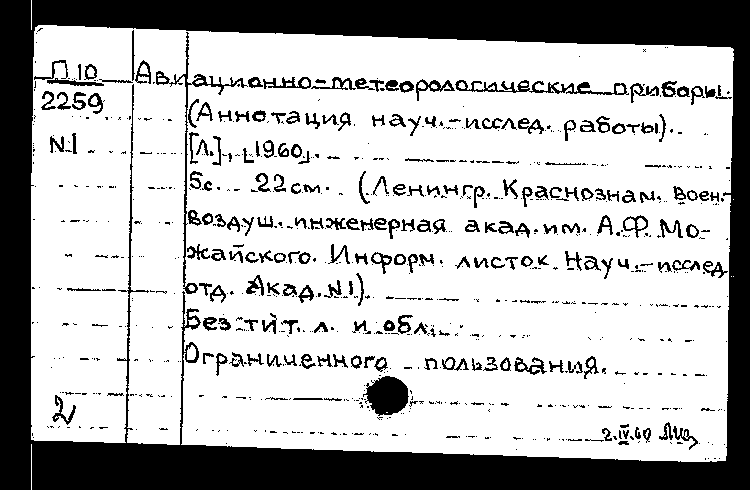 П 10 Авиационно-метеорологические приборы.
2259 (Аннотация науч.-исслед. работы).
N1 [Л.], [1960].
5с. 22 см. (Ленингр. Краснознам. воен.-
воздуш. инженерная акад. им. А.Ф. Мо-
жайского. Информ. листок Науч.-исслед.
отд. Акад. N1).
Без тит. л. и обл.
Ограниченного пользования.
2
2.IV.60